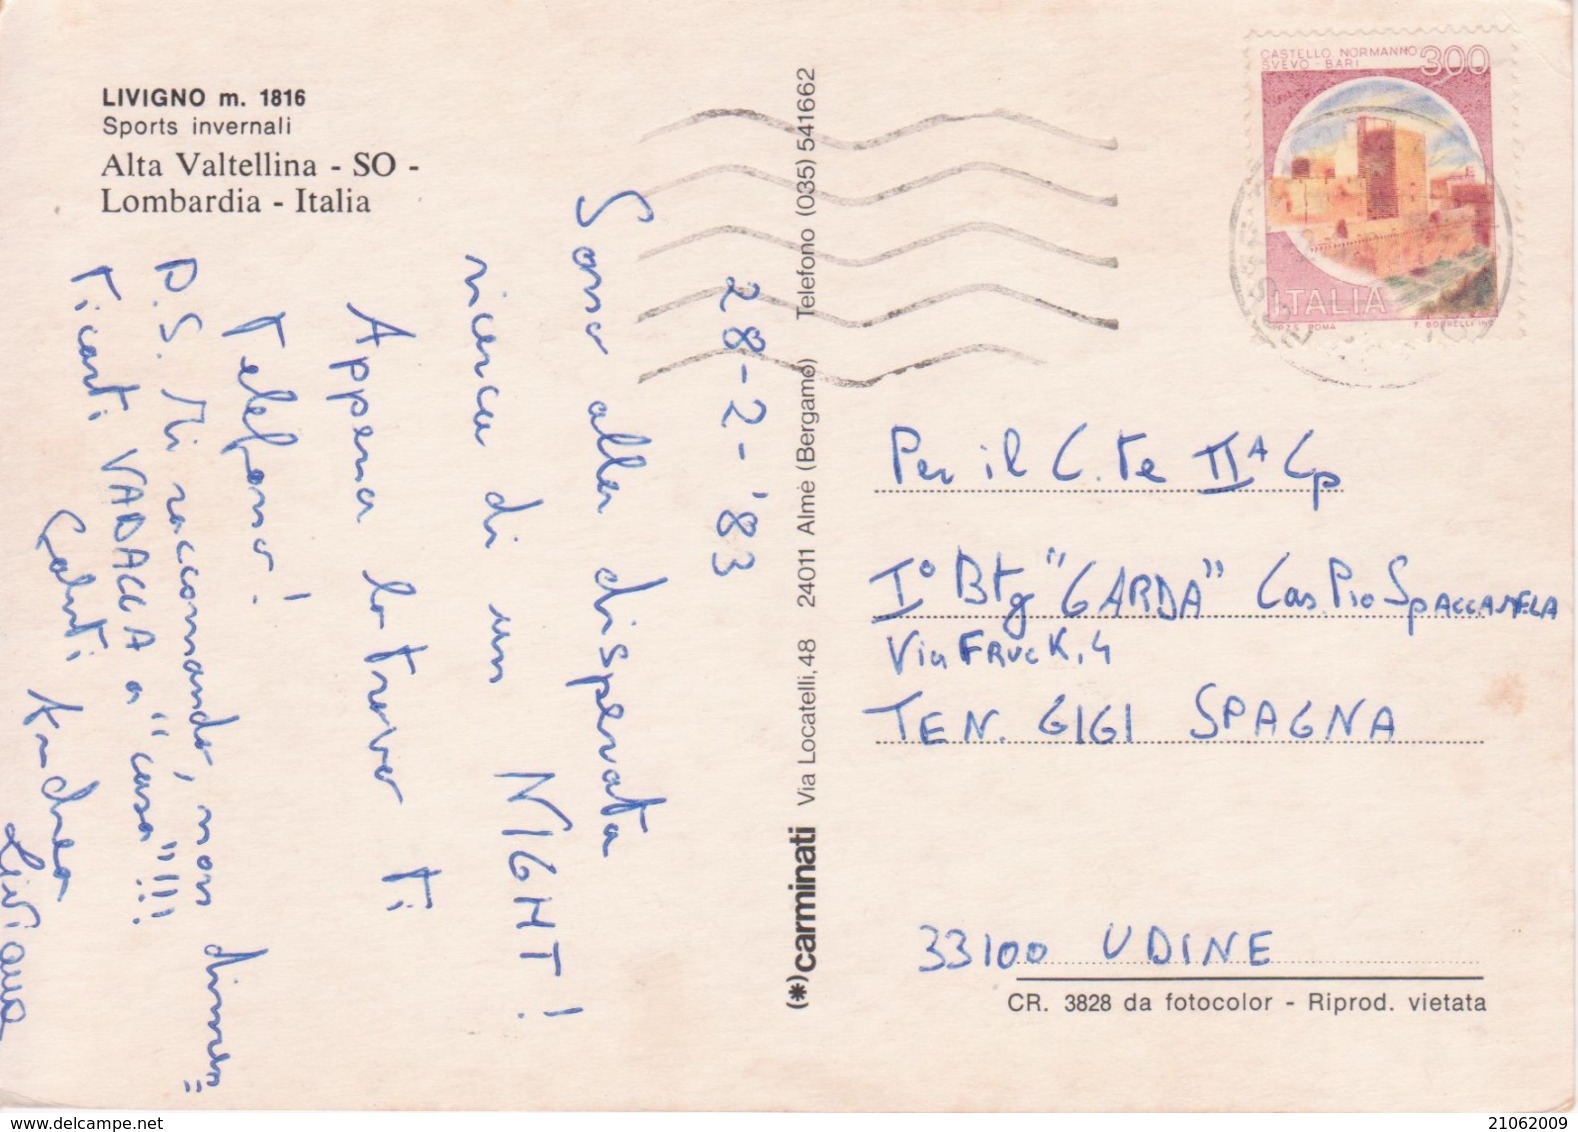 LIVIGNO m. 1816
Sports invernali
Alta Valtellina - SO -
Lombardia - Italia
28-2-'83
Sono alla disperata
ricerca di un NIGHT!
Appena lo trovo ti
telefono!
P.S. Mi raccomando, non
ticarti VADACCA a "casa"!!!
Saluti Andrea
Liviana
(*)carminati Via Locatelli, 48 24011 Almè (Bergamo) Telefono (035) 541662
CASTELLO NORMANNO
SVEVO - BARI
300
ITALIA
I.P.Z.S. ROMA F. BORRELLI INC.
Per il C.te IIª Cp
I° Btg "GARDA" Cas. Pio SPACCAMELA
Via FRUCK, 4
TEN. GIGI SPAGNA
33100 UDINE
CR. 3828 da fotocolor - Riprod. vietata
21062009